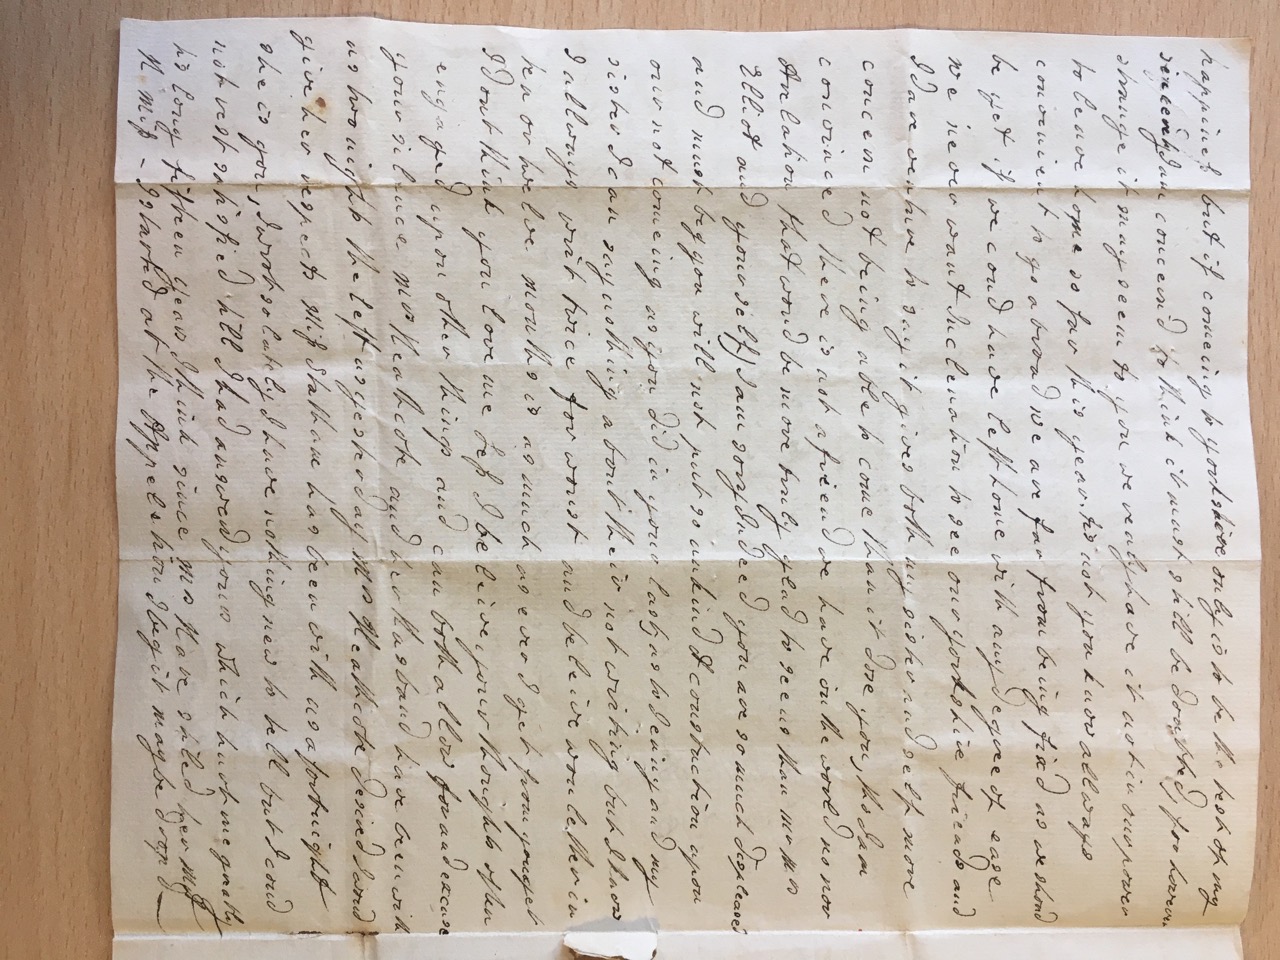 happiness but if comeing to yorkshire only is to be the test of my
sincerity I am concernd to think it must still be doubted, for however
strange it may seem to you we realy have it not in our power
to leave home so far this year. tis not you know allways
convenient to go abroad we are far from being fixd as we shoud
be yet if we coud have left home with any degree of ease
we never want Inclenation to see our yorkshire friends and
I dare venture to say it gives both my sister and self more
concern not being able to come than it dose you, tho I am
convinced there is not a friend we have in the world no nor
Arelation that woud be more truly glad to see us than mr mrs
Elliot and yourself) I am sory Indeed you are so much displeased
and must beg you will not put so unkind A constuction upon
our not comeing as you did in your last, as to Jenny and my
sister I can say nothing about their not writing but I know
I allways writ twice for wonst and beleive won letter in
ten or twelve months is as much as ever I get from you yet
I dont think you love me Less I beleive your thoughts often
engaged upon other things and can both allow for and excuse
your silence mrs Heathcote and her Husband have been with
us two nights the left us yesterday Mrs Heathcote desired I woud
give her respects Miss Statham has been with us a fortnight
she is you, I wrot so lately I have nothing new to tell but I coud
not rest satisfied till I had answerd yours which hurt me greatly
tis long fifteen years I think since Mrs Hare stiled her
H miss - I started at the Appeletion I beg it may be dropd